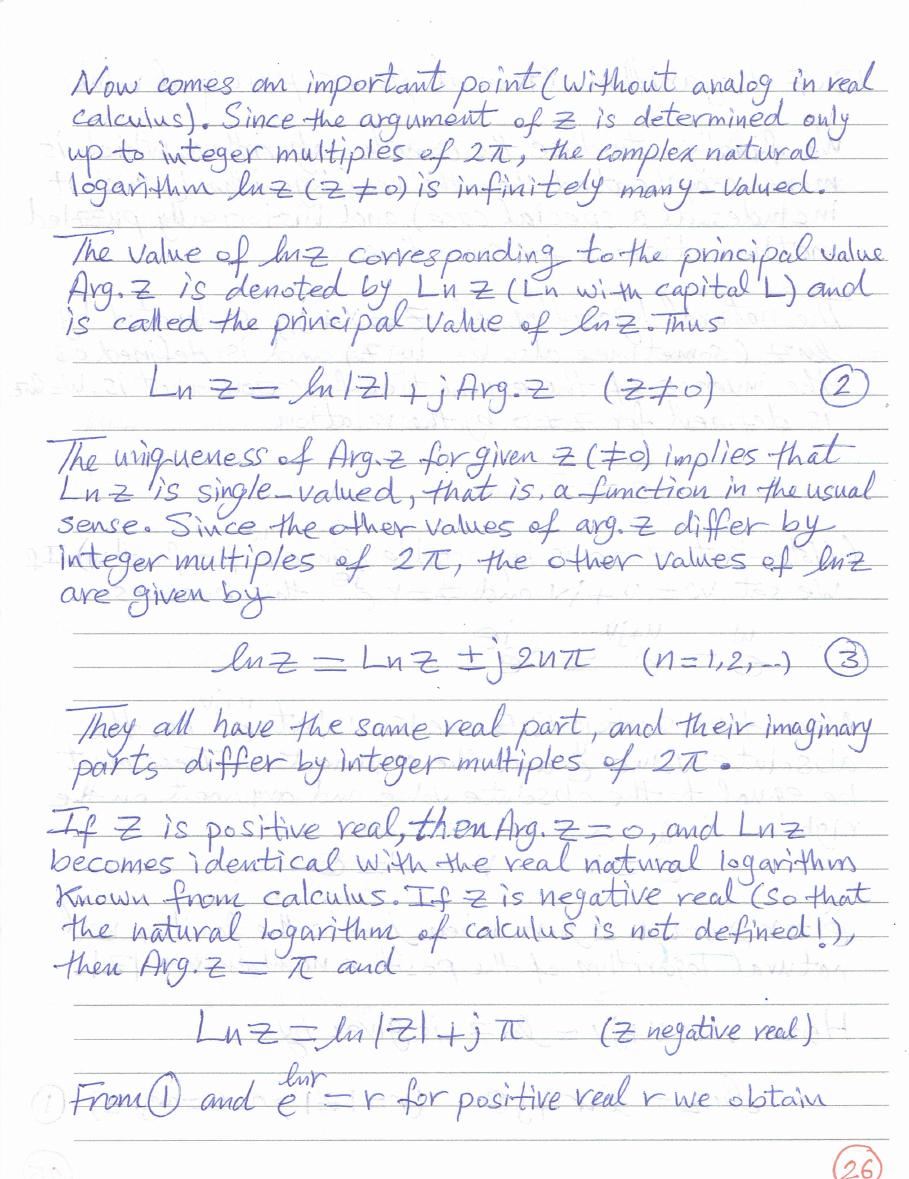 Now comes an important point (Without analog in real
calculus). Since the argument of z is determined only
up to integer multiples of 2π, the complex natural
logarithm ln z (z ≠ 0) is infinitely many-valued.
The value of ln z corresponding to the principal value
Arg. z is denoted by Ln z (Ln with capital L) and
is called the principal value of ln z. Thus
Ln z = ln |z| + j Arg. z (z ≠ 0) ②
The uniqueness of Arg. z for given z (≠ 0) implies that
Ln z is single-valued, that is, a function in the usual
sense. Since the other values of arg. z differ by
integer multiples of 2π, the other values of ln z
are given by
ln z = Ln z ± j 2nπ (n = 1, 2, ...) ③
They all have the same real part, and their imaginary
parts differ by integer multiples of 2π.
If z is positive real, then Arg. z = 0, and Ln z
becomes identical with the real natural logarithm
Known from calculus. If z is negative real (so that
the natural logarithm of calculus is not defined!),
then Arg. z = π and
Ln z = ln |z| + j π (z negative real)
From ① and e^{ln r} = r for positive real r we obtain
26